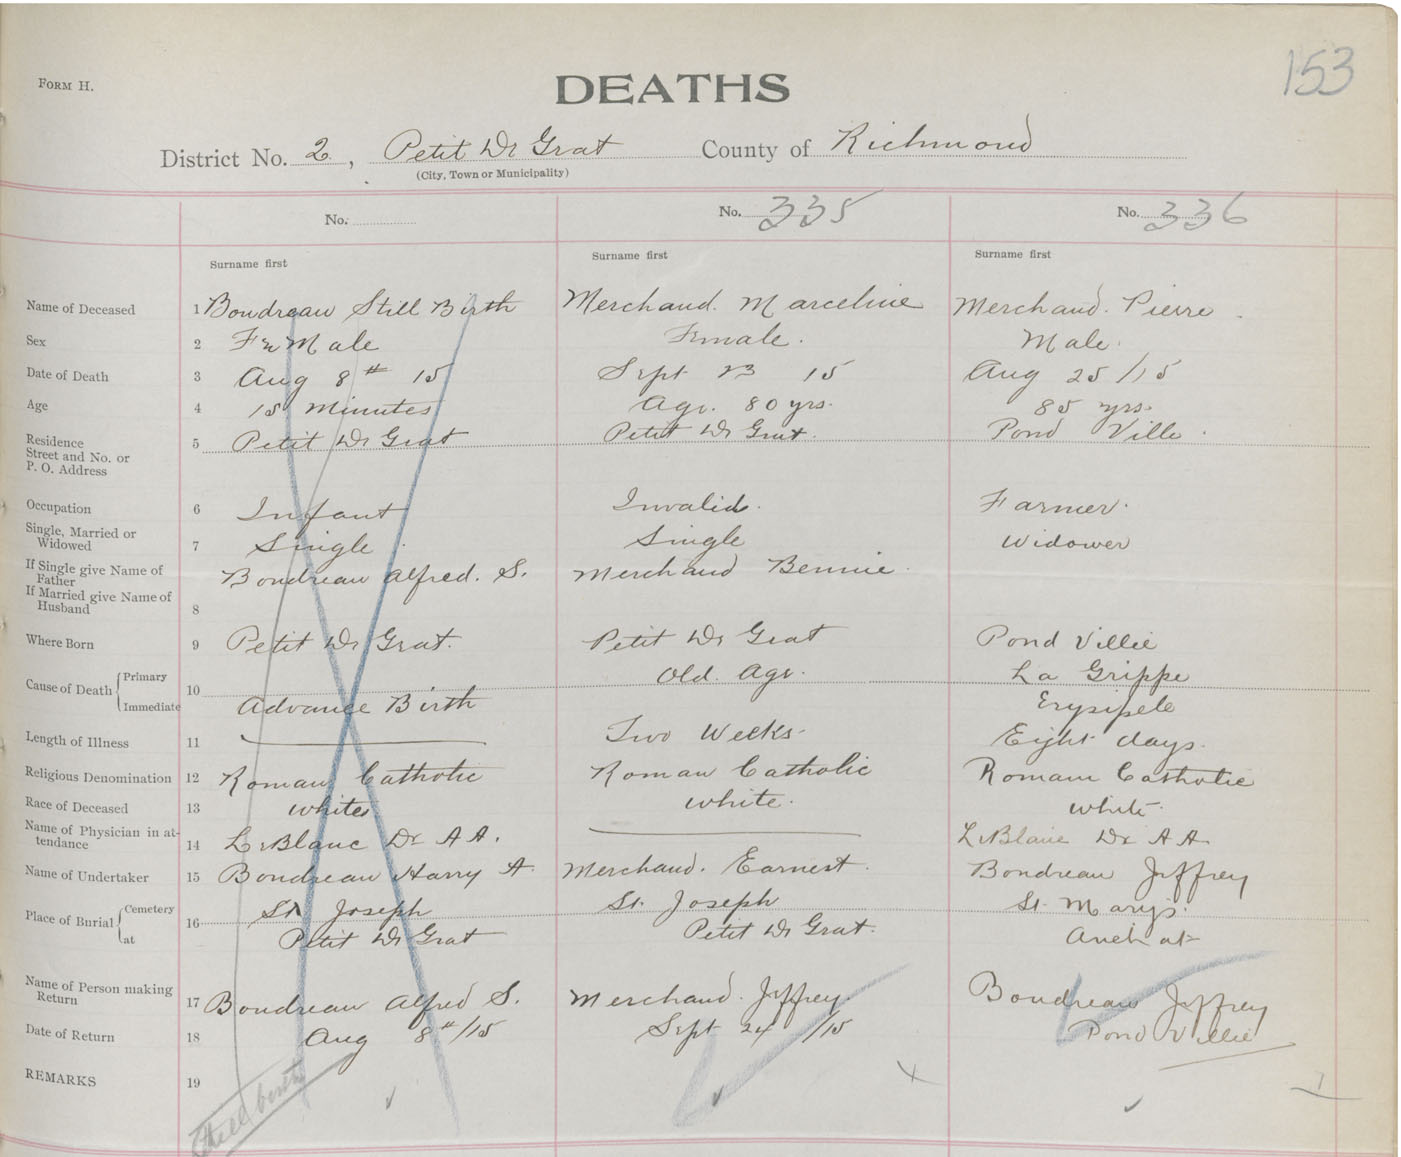 153
FORM H.
DEATHS
District No. 2, Petit Dr Grat County of Richmond
(City, Town or Municipality)
No. No. 335 No. 336
Surname first Surname first Surname first
Name of Deceased 1 Boudreau Still Birth Merchand. Marceline Merchand. Pierre
Sex 2 Fe Male Female. Male.
Date of Death 3 Aug 8th 15 Sept 23 15 Aug 25/15
Age 4 15 minutes Age. 80 yrs. 85 yrs.
Residence Street and No. or P. O. Address 5 Petit Dr Grat Petit Dr Grat. Pond Ville.
Occupation 6 Infant Invalid. Farmer.
Single, Married or Widowed 7 Single Single Widower
If Single give Name of Father Boudreau Alfred. S. Merchand Bennie.
If Married give Name of Husband 8
Where Born 9 Petit Dr Grat. Petit Dr Grat Pond Villie
Cause of Death Primary 10 Old. Age. La Grippe
Immediate Advance Birth Erysipele
Length of Illness 11 Two Weeks Eight days.
Religious Denomination 12 Roman Catholic Roman Catholic Romam Catholic
Race of Deceased 13 white white. white.
Name of Physician in attendance 14 LeBlanc Dr A A. LeBlanc Dr A A.
Name of Undertaker 15 Boudreau Harry A Merchand. Earnest. Boudreau Jeffrey
Place of Burial Cemetery 16 St Joseph St. Joseph St. Marys.
at Petit Dr Grat Petit Dr Grat. Arichat
Name of Person making Return 17 Boudreau Alfred S. Merchand. Jeffrey. Boudreau Jeffrey
Date of Return 18 Aug 8th/15 Sept 24 /15 Pond Villie
REMARKS 19
still birth